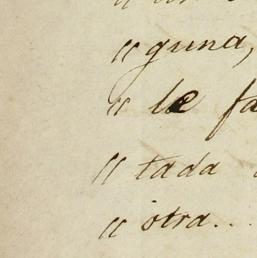 " guna,
" le fa
" tada
" otra..